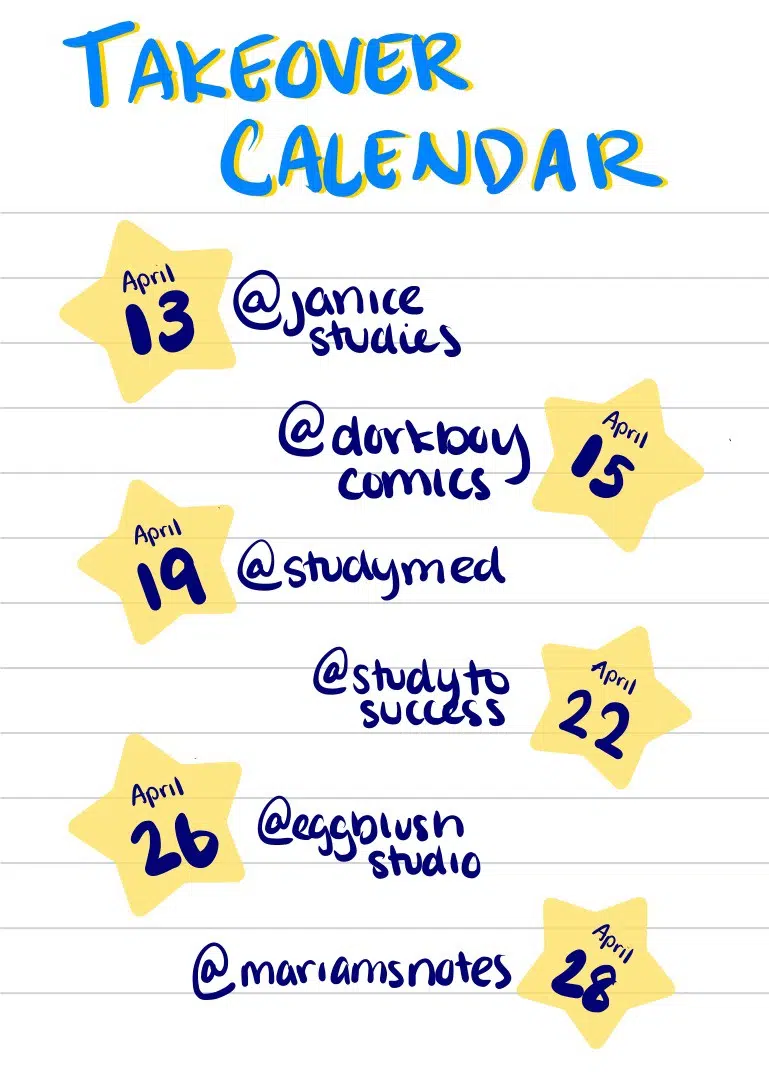 TAKEOVER
CALENDAR
April
13
@janice
studies
@dorkboy
comics
April
15
April
19
@studymed
@studyto
success
April
22
April
26
@eggblush
studio
@mariamsnotes
April
28